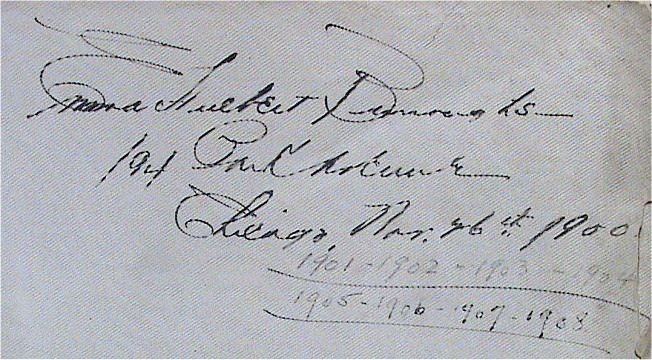 Emma Hulbert Burroughs
194 Park Avenue
Chicago, Nov. 26th 1900
1901-1902-1903-1904
1905-1906-1907-1908